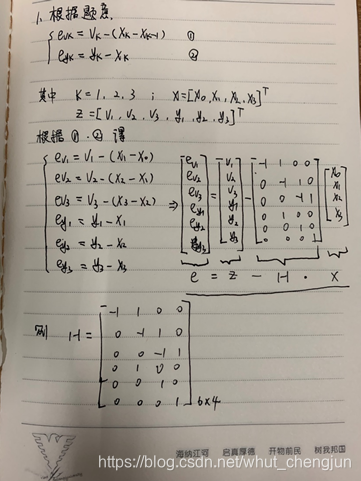 1. 根据题意.
e_{vK} = V_K - (X_K - X_{K-1}) ①
e_{yK} = y_K - X_K ②
其中 K = 1, 2, 3 ; X = [X_0, X_1, X_2, X_3]^T
Z = [V_1, V_2, V_3, y_1, y_2, y_3]^T
根据 ①. ② 得
e_{V1} = V_1 - (X_1 - X_0)
e_{V2} = V_2 - (X_2 - X_1)
e_{V3} = V_3 - (X_3 - X_2)
e_{y1} = y_1 - X_1
e_{y2} = y_2 - X_2
e_{y3} = y_3 - X_3
⇒
[e_{V1} e_{V2} e_{V3} e_{y1} e_{y2} e_{y3}] = [V_1 V_2 V_3 y_1 y_2 y_3] -
-1 1 0 0
0 -1 1 0
0 0 -1 1
0 1 0 0
0 0 1 0
0 0 0 1
[X_0 X_1 X_2 X_3]
e = Z - H · X
则 H =
-1 1 0 0
0 -1 1 0
0 0 -1 1
0 1 0 0
0 0 1 0
0 0 0 1
6×4
海纳江河 启真厚德 开物前民 树我邦国
https://blog.csdn.net/whut_chengjun